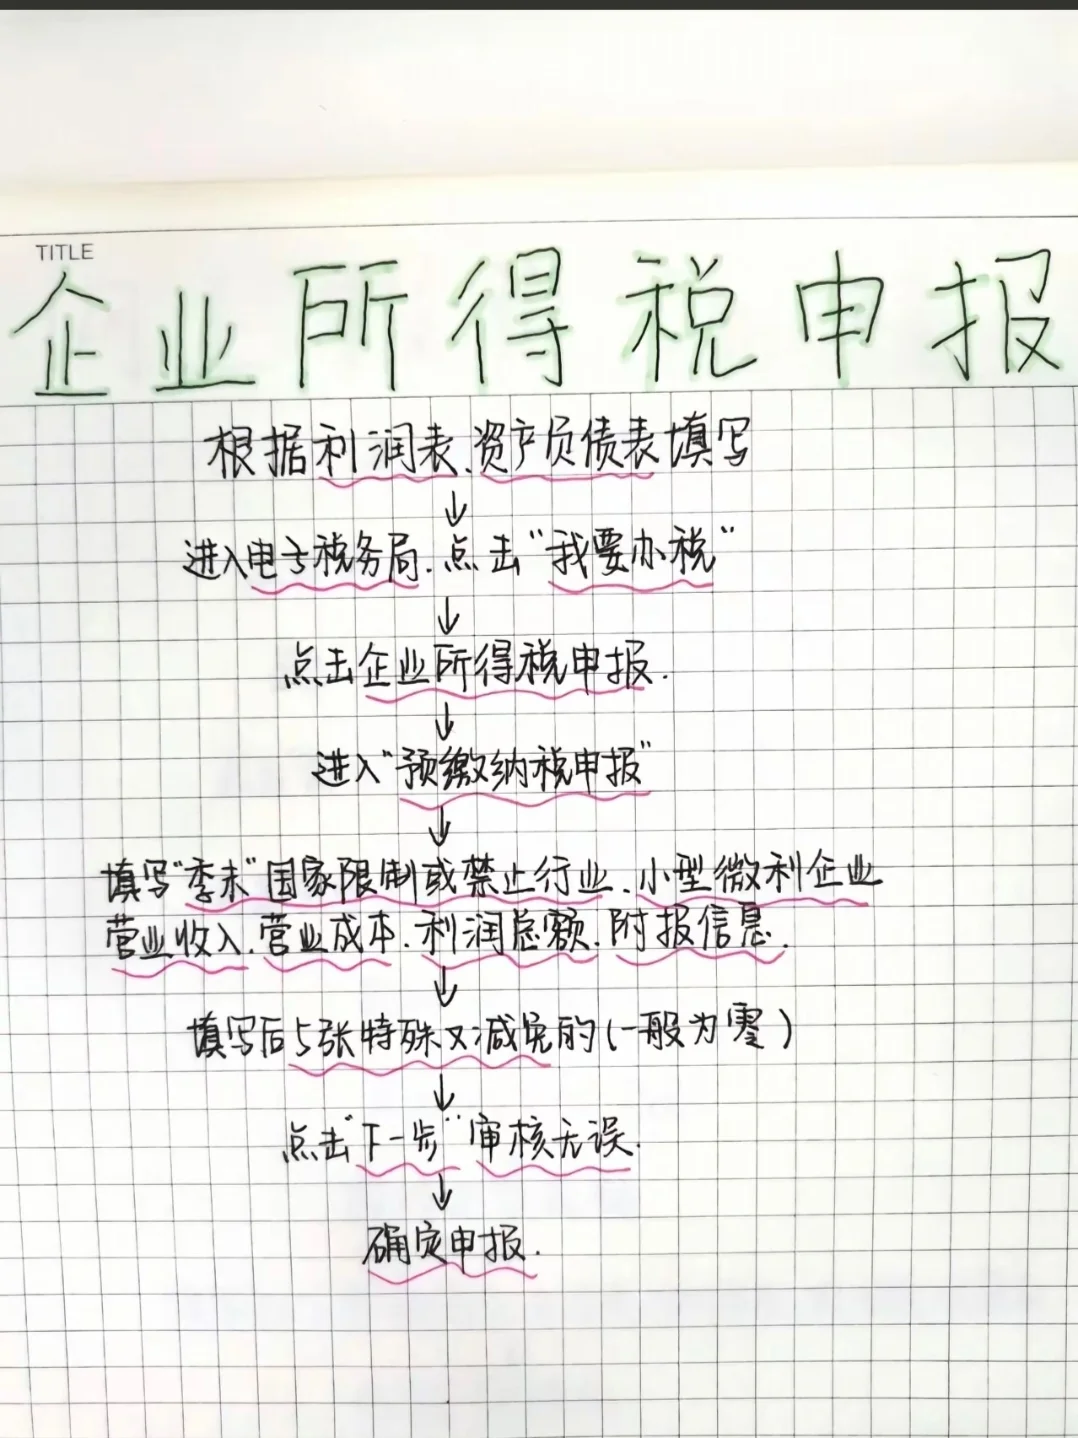 TITLE
企业所得税申报
根据利润表、资产负债表填写
↓
进入电子税务局.点击“我要办税”
↓
点击企业所得税申报.
↓
进入“预缴纳税申报”
↓
填写“季末”国家限制或禁止行业、小型微利企业
营业收入、营业成本、利润总额、附报信息.
↓
填写后5张特殊又减免的(一般为零)
↓
点击“下一步”审核无误.
↓
确定申报.